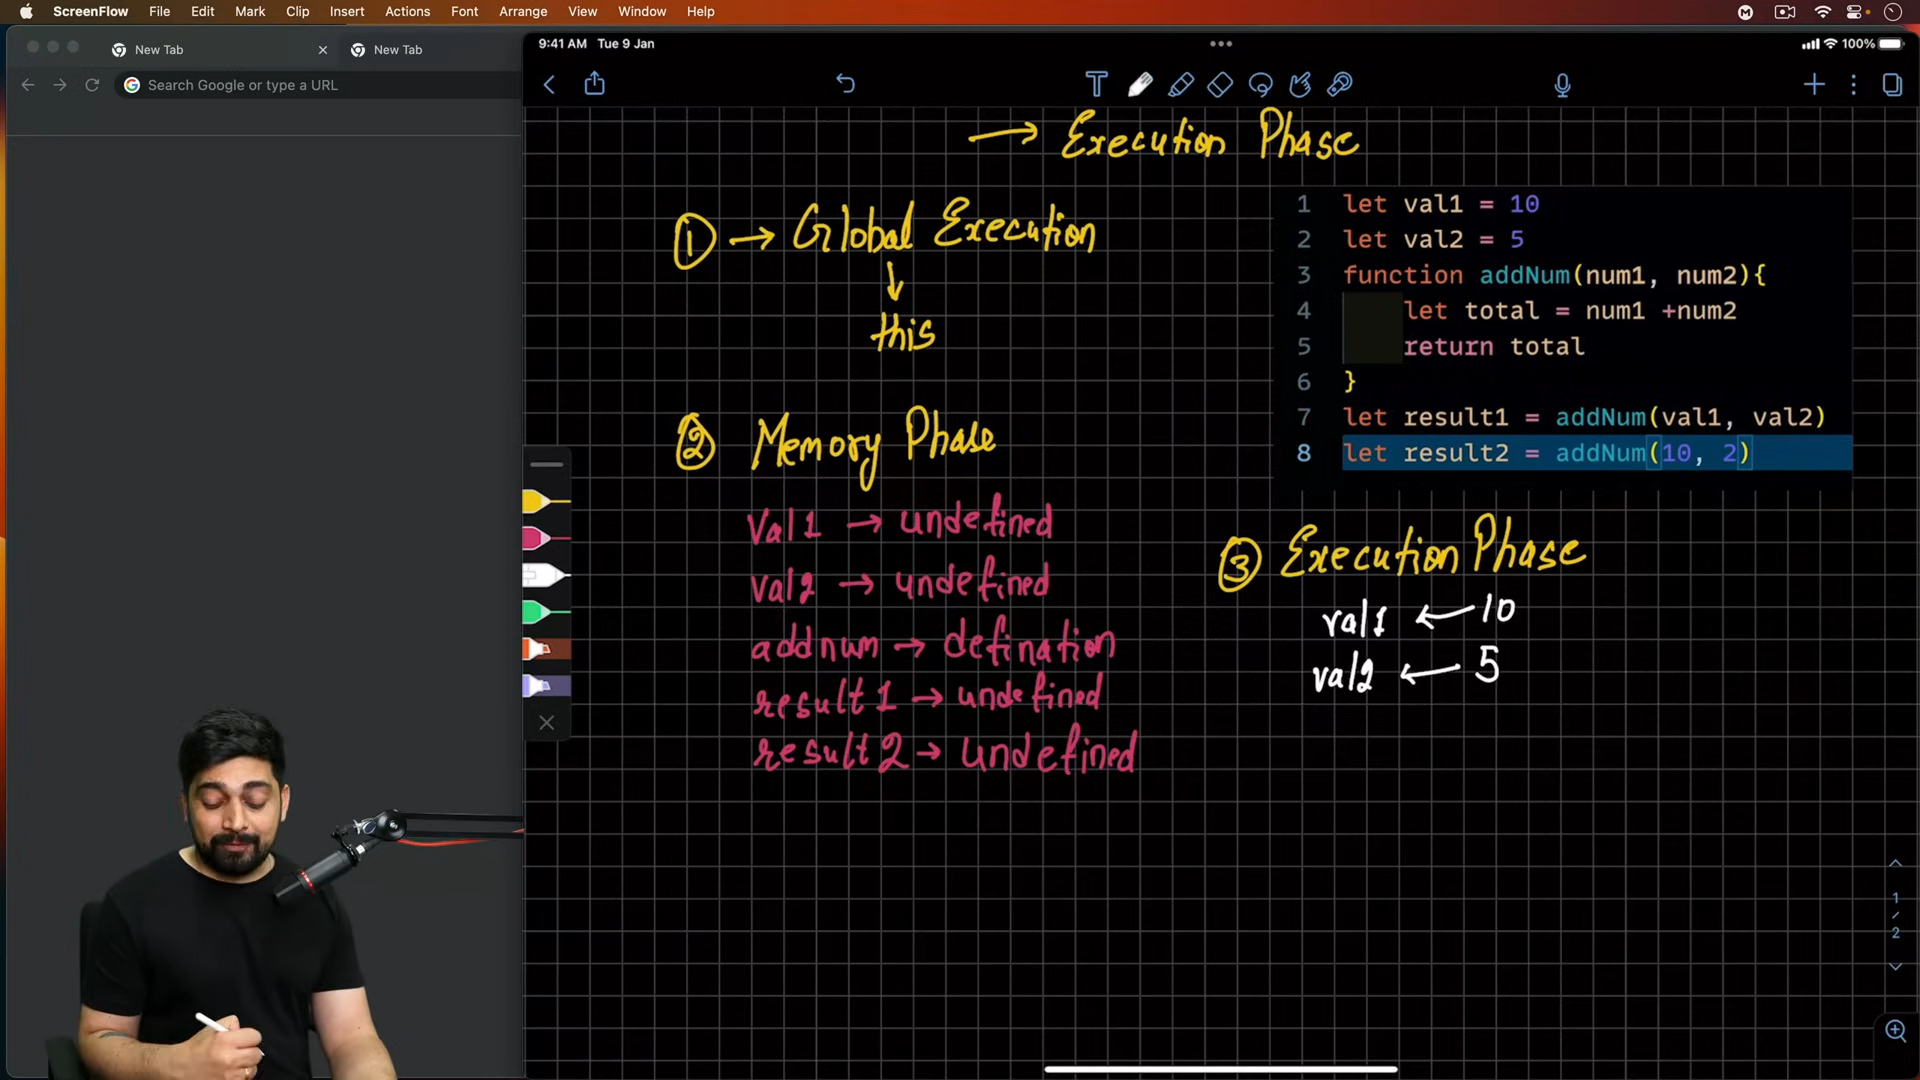 ScreenFlow File Edit Mark Clip Insert Actions Font Arrange View Window Help
New Tab
New Tab
Search Google or type a URL
9:41 AM Tue 9 Jan
100%
T
→ Execution Phase
① → Global Execution
↓
this
② Memory Phase
Val1 → undefined
val2 → undefined
addnum → defination
result1 → undefined
result2 → undefined
1 let val1 = 10
2 let val2 = 5
3 function addNum(num1, num2){
4 let total = num1 +num2
5 return total
6 }
7 let result1 = addNum(val1, val2)
8 let result2 = addNum(10, 2)
③ Execution Phase
val1 ← 10
val2 ← 5
1
/
2